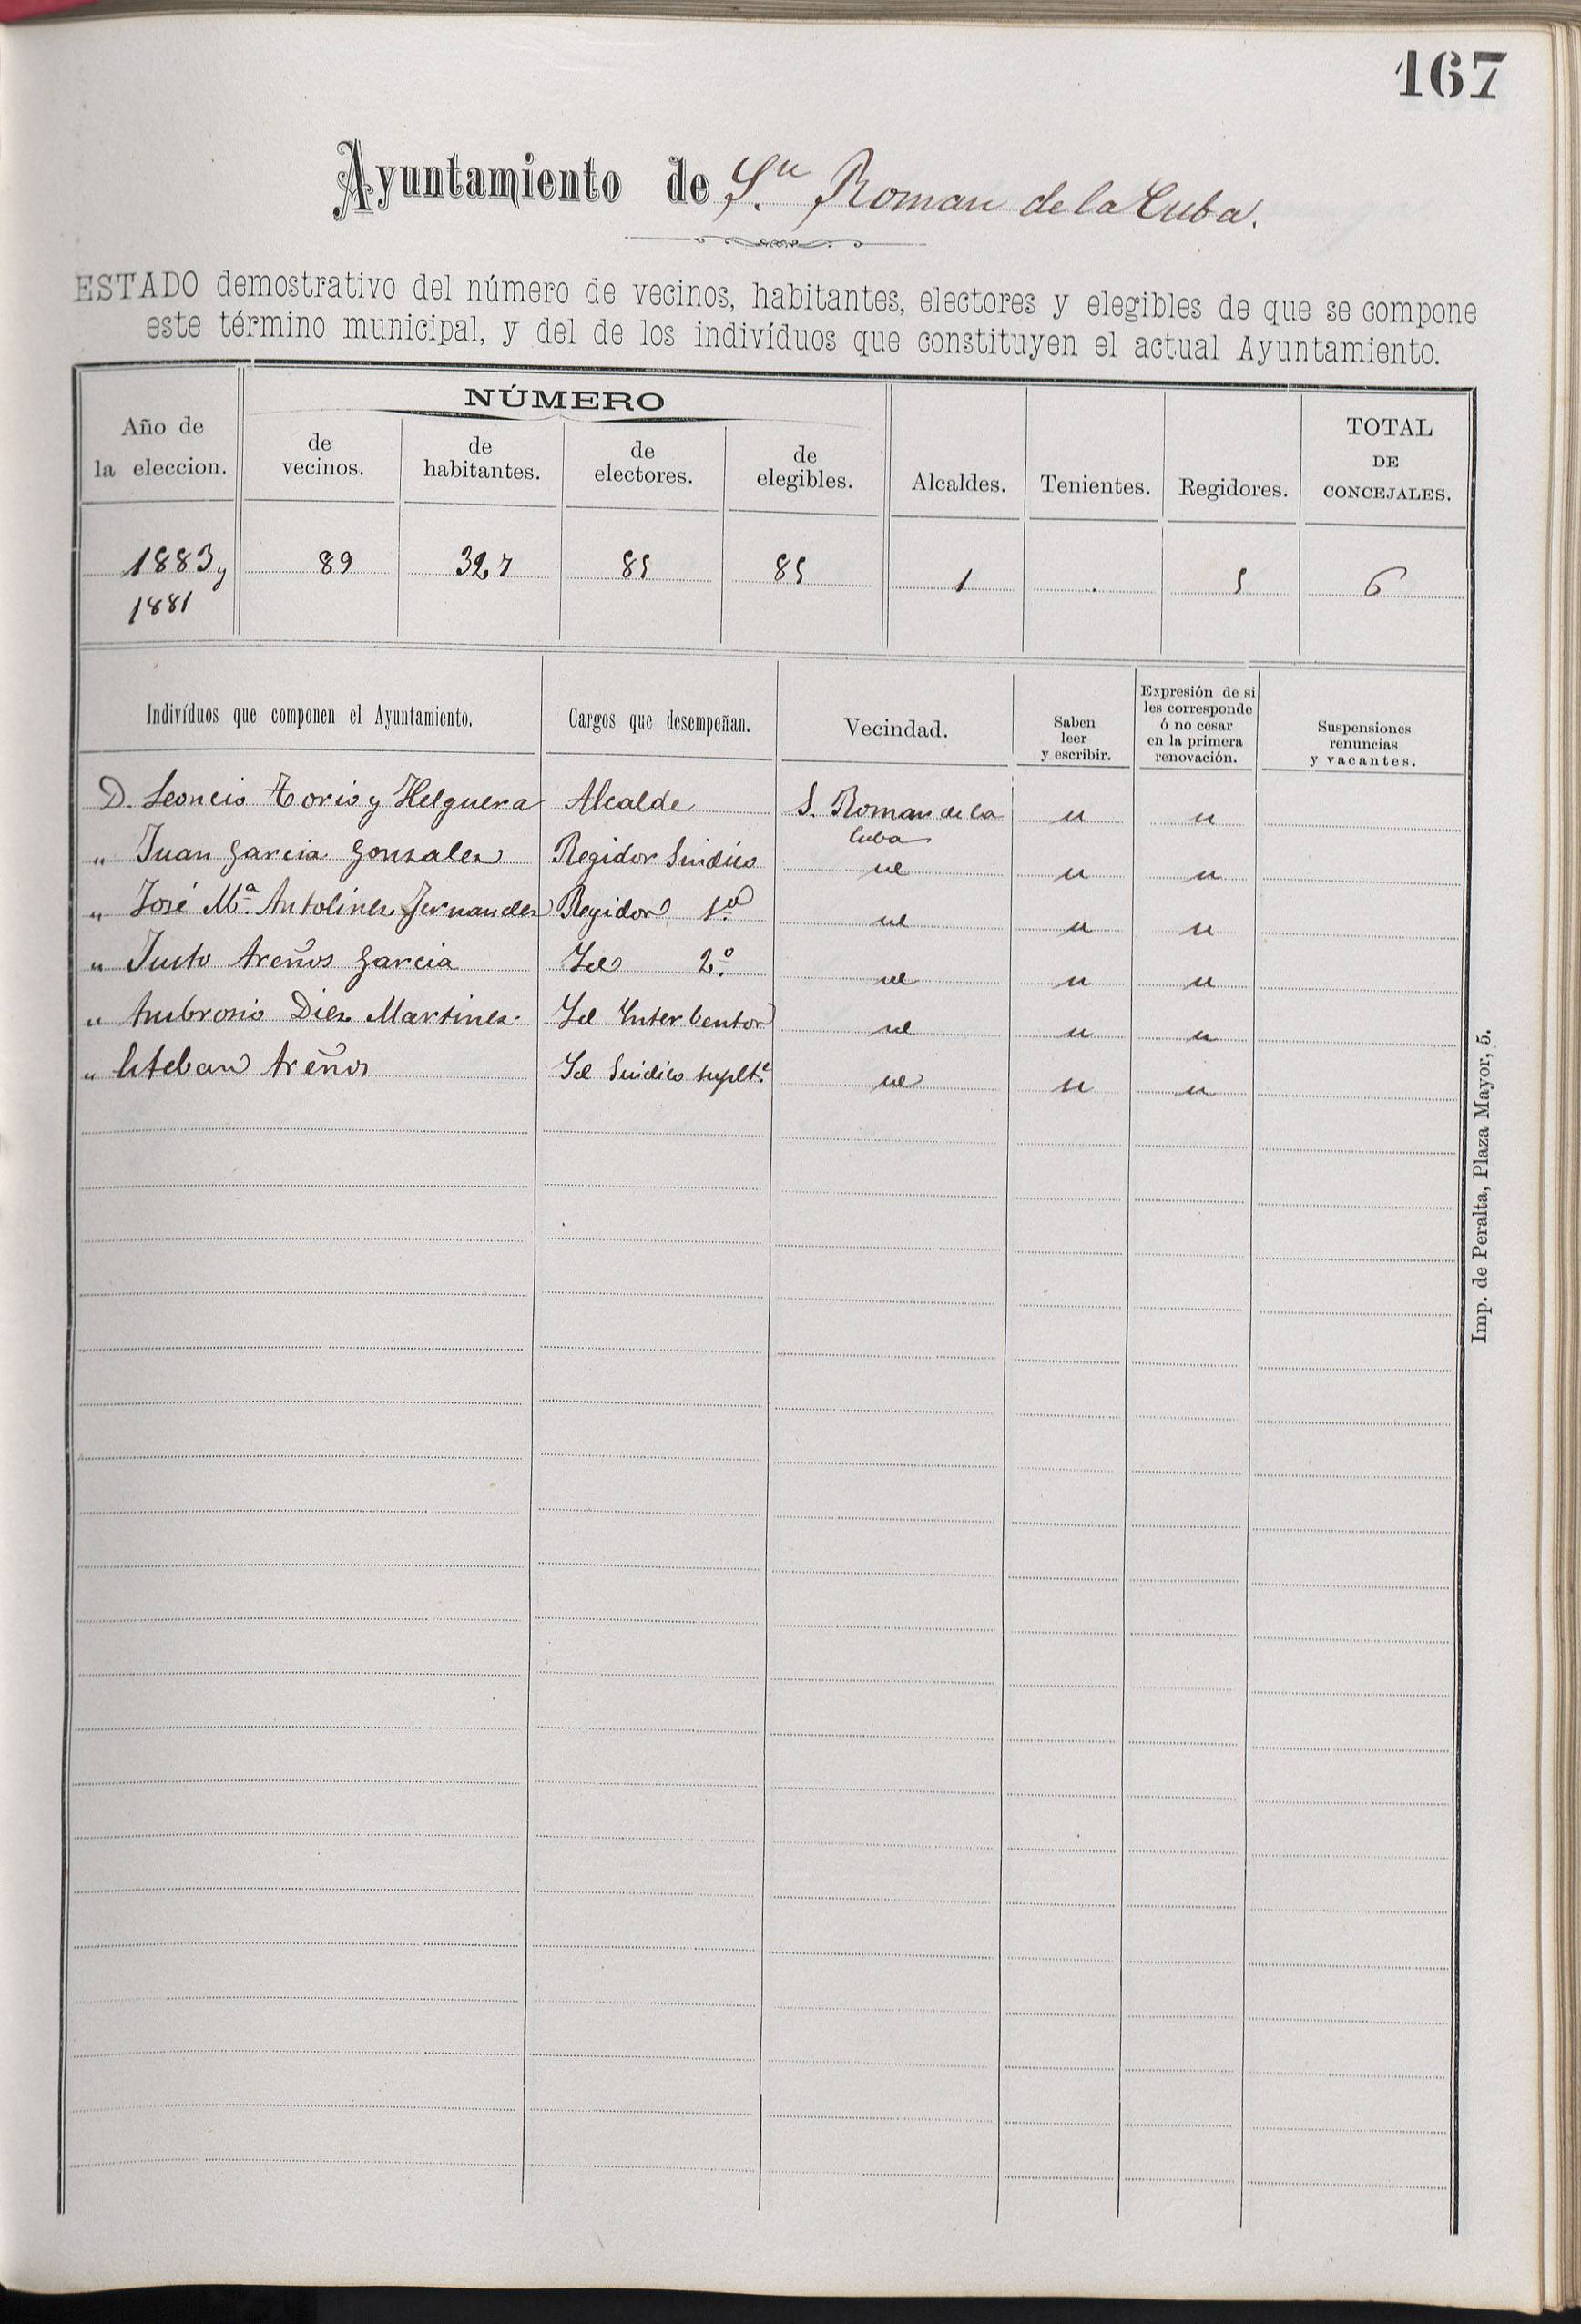 167
Ayuntamiento de Sn. Roman de la Cuba.
ESTADO demostrativo del número de vecinos, habitantes, electores y elegibles de que se compone
este término municipal, y del de los indivíduos que constituyen el actual Ayuntamiento.
Año de la eleccion.
NÚMERO
de vecinos.
de habitantes.
de electores.
de elegibles.
Alcaldes.
Tenientes.
Regidores.
TOTAL DE CONCEJALES.
1883 y 89 327 85 85 1 .. 5 6
1881
Indivíduos que componen el Ayuntamiento.
Cargos que desempeñan.
Vecindad.
Saben leer y escribir.
Expresión de si les corresponde ó no cesar en la primera renovación.
Suspensiones renuncias y vacantes.
D. Leoncio Torio y Helguera Alcalde S. Roman de la
Cuba
" Juan Garcia Gonzalez Regidor Sindico
" José Mª. Antolinez Fernandez Regidor 1º
" Justo Areños Garcia Id 2.º
" Ambrosio Diez Martinez. Id Interbentor
" Esteban Areños Id Sindico suplte.
Imp. de Peralta, Plaza Mayor, 5.